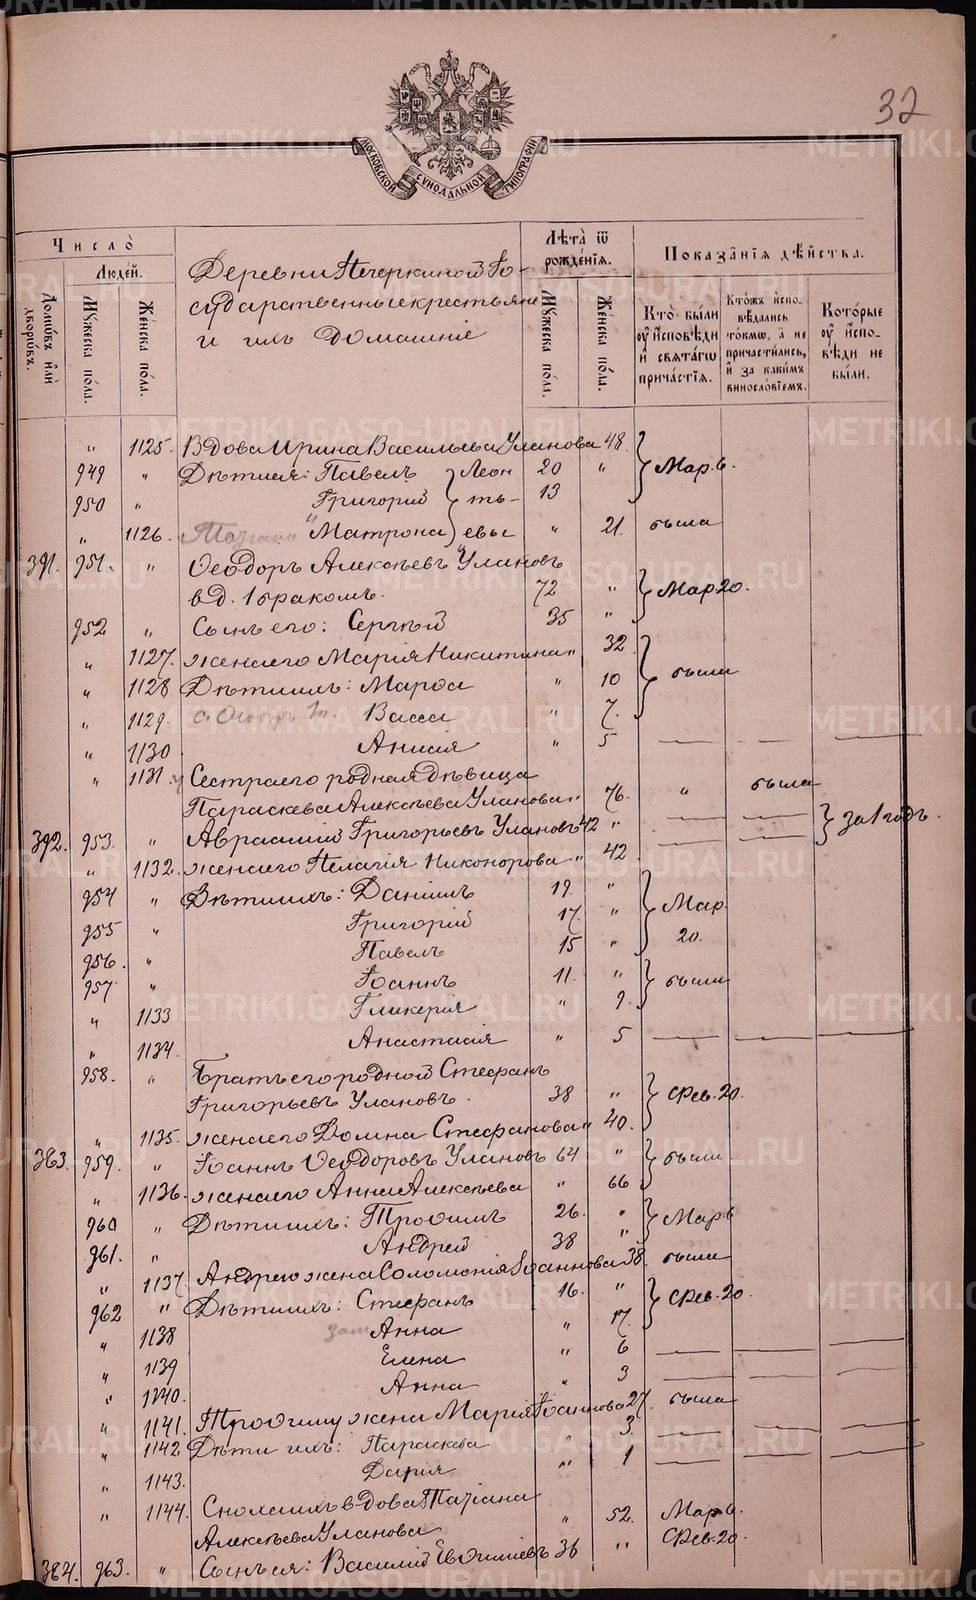 32
МОСКОВСКОЙ СѴНОДАЛЬНОЙ ТИПОГРАФІИ
Число̀
Людей.
Домѡвъ или дворѡвъ.
Мꙋжеска пола.
Женска пола.
Деревни Печеркиной Го-
сударственные крестьяне
и ихъ домашніе
Лѣта ѿ рожденія.
Мꙋжеска пола.
Женска пола.
Показанія дѣйства.
Кто были оу исповѣди и свѧтагѡ причастія.
Ктожъ исповѣдались токмѡ, а не причастились, и за какимъ винословіемъ.
Которые оу исповѣди не были.
" 1125. Вдова Ирина Васильева Уланова 48.
949 " Дѣти ея: Павелъ Леон 20 " Мар. 6.
950 " Григорий ть- 13
" 1126. Матрона евы " 21. была
391. 951. " Ѳеодоръ Алексѣевъ Улановъ
вд. 1 бракомъ. 72 " Мар. 20.
952 " Сынъ его: Сергѣй 35 "
" 1127. жена его Марія Никитина " 32
" 1128 Дѣти ихъ: Марѳа " 10 были
" 1129. Васса " 7.
" 1130 Анисія " 5
" 1131 Сестра его родная дѣвица
Параскева Алексѣева Уланова " 76. " была
392. 953. " Авраамій Григорьевъ Улановъ 42 " за 1 годъ.
" 1132. жена его Пелагія Никонорова " 42
954 " Дѣти ихъ: Даніилъ 19. "
955 " Григорій 17. " Мар.
956. " Павелъ 15 " 20.
957 " Іоаннъ 11. " были
" 1133 Гликерія " 9.
" 1134. Анастасія " 5
958. " Братъ его родной Стефанъ
Григорьевъ Улановъ. 38 " Фев. 20.
" 1135. жена его Домна Стефанова " 40.
383. 959. " Іоаннъ Ѳеодоровъ Улановъ 64 " были
" 1136. жена его Анна Алексѣева " 66
960 " Дѣти ихъ: Трофимъ 26. " Мар 6
961. " Андрей 38 "
" 1137. Андрею жена Соломонія Іоаннова 38. была
962 " Дѣти ихъ: Стефанъ 16. " Фев. 20.
" 1138 Анна " 17.
" 1139 Елена " 6
" 1140. Анна " 3
" 1141. Трофиму жена Марія Іоаннова 27. была
" 1142 Дѣти ихъ: Параскева " 3.
" 1143. Дарія " 1
" 1144. Сноха ихъ вдова Татіана
Алексѣева Уланова " 52. Мар. 6.
384. 963. " Сынъ ея: Василій Евфиміевъ 36 " Фев. 20